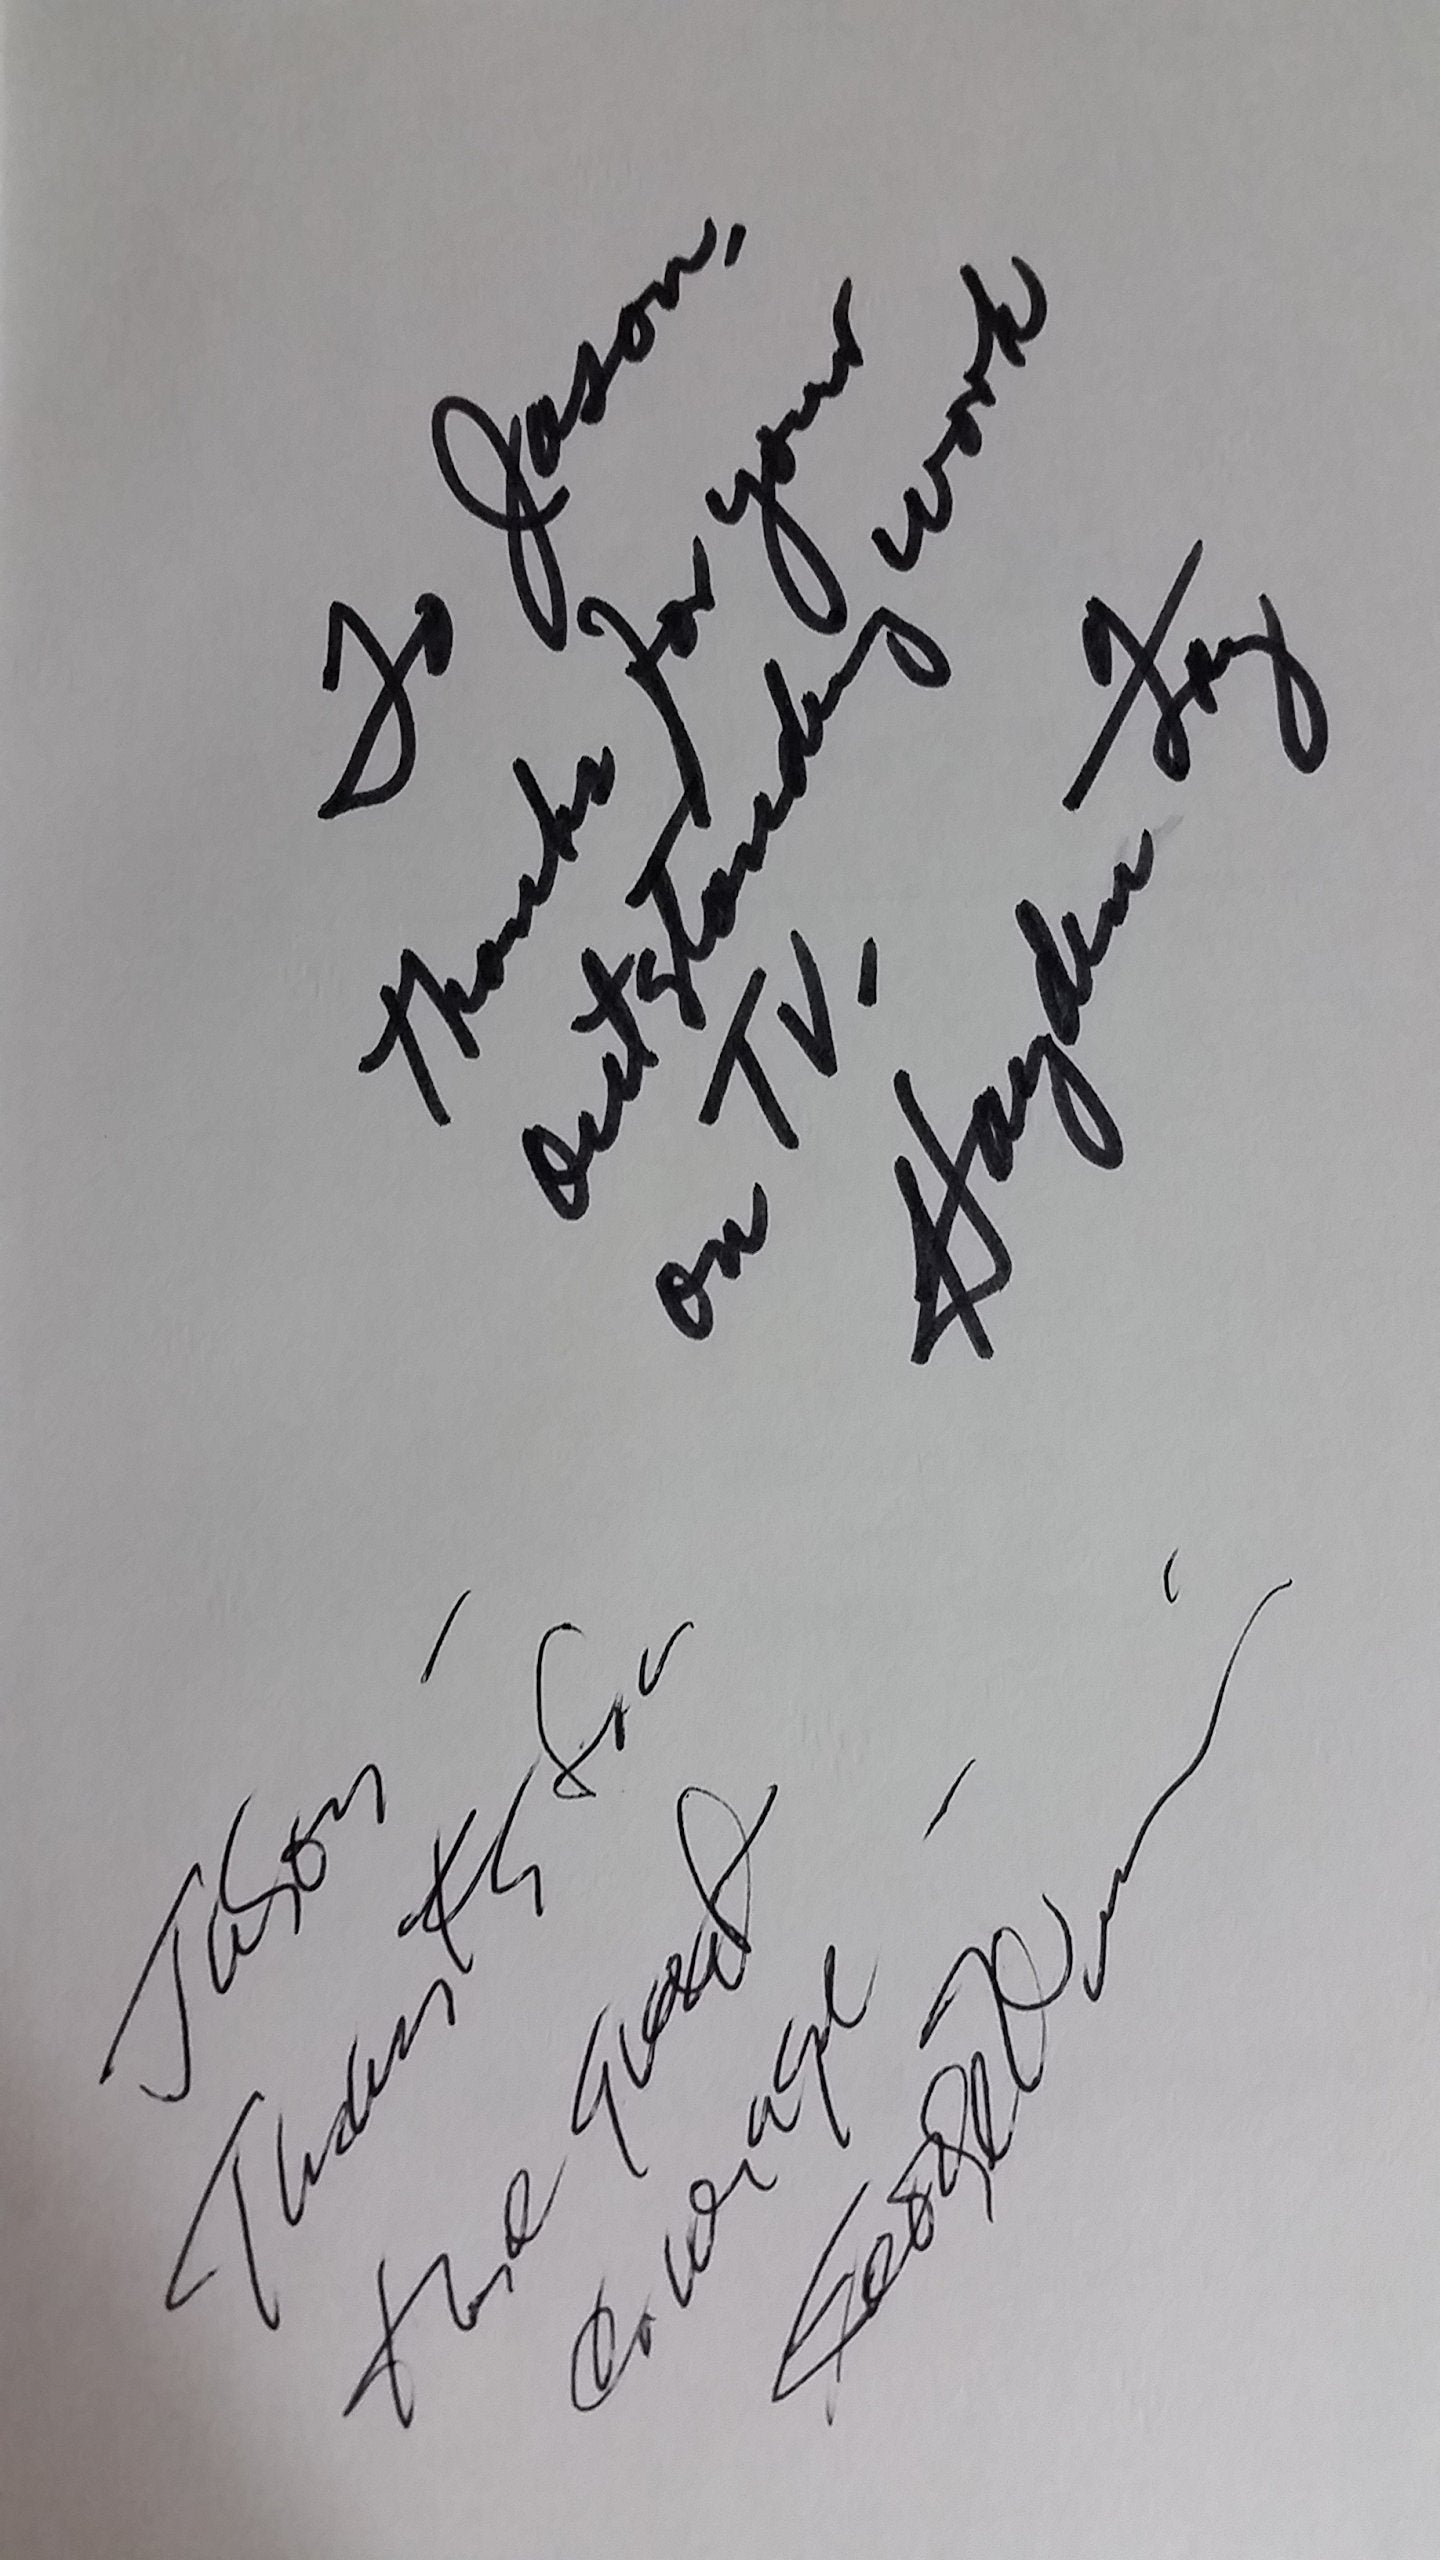 To Jason,
Thanks for your
outstanding work
on TV,
Hayden Fry
Jason -
Thanks for
the great
coverage -
George